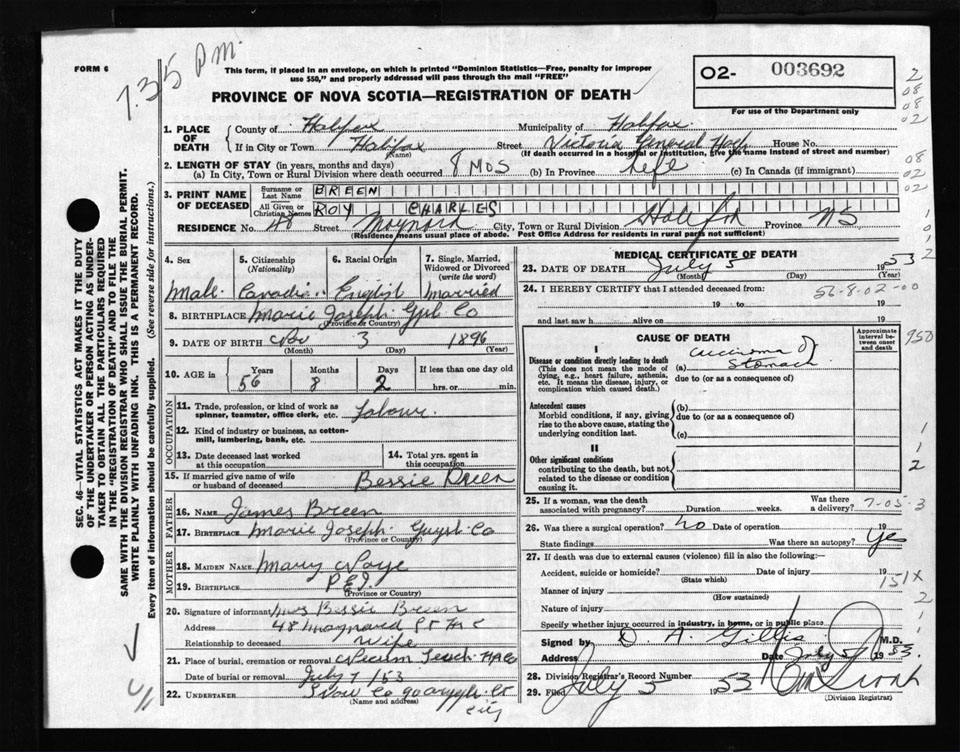 FORM 6
7.35 P.M.
This form, if placed in an envelope, on which is printed "Dominion Statistics—Free, penalty for improper
use $50," and properly addressed will pass through the mail "FREE"
PROVINCE OF NOVA SCOTIA—REGISTRATION OF DEATH
O2- 003692
For use of the Department only
2
08
08
02
1. PLACE OF DEATH
County of Halifax Municipality of Halifax
If in City or Town Halifax (Name) Street Victoria General House No.
(If death occurred in a hospital or institution, give the name instead of street and number)
2. LENGTH OF STAY (in years, months and days)
(a) In City, Town or Rural Division where death occurred 8 Mos (b) In Province Life (c) In Canada (if immigrant)
08
02
02
3. PRINT NAME OF DECEASED
Surname or Last Name BREEN
All Given or Christian Names ROY CHARLES
RESIDENCE No. 48 Street Maynard City, Town or Rural Division Halifax Province NS
(Residence means usual place of abode. Post Office Address for residents in rural parts not sufficient)
4. Sex
Male
5. Citizenship (Nationality)
Canadian
6. Racial Origin
English
7. Single, Married, Widowed or Divorced (write the word)
Married
8. BIRTHPLACE Marie Joseph Co
(Province or Country)
9. DATE OF BIRTH Nov 3 1896
(Month) (Day) (Year)
10. AGE in Years 56 Months 8 Days 2 If less than one day old hrs. or min.
OCCUPATION
11. Trade, profession, or kind of work as spinner, teamster, office clerk, etc.
12. Kind of industry or business, as cotton-mill, lumbering, bank, etc.
13. Date deceased last worked at this occupation
14. Total yrs. spent in this occupation
15. If married give name of wife or husband of deceased Bessie Breen
FATHER
16. Name James Breen
17. Birthplace Marie Joseph Guysb Co
(Province or Country)
MOTHER
18. MAIDEN NAME Mary
19. BIRTHPLACE P.E.I.
(Province or Country)
20. Signature of informant Mrs Bessie Breen
Address 48 Maynard St
Relationship to deceased Wife
21. Place of burial, cremation or removal Necum Teuch
Date of burial or removal July 7/53
22. UNDERTAKER Snow Co
(Name and address)
city
MEDICAL CERTIFICATE OF DEATH
23. DATE OF DEATH July 5 1953
(Month) (Day) (Year)
24. I HEREBY CERTIFY that I attended deceased from:
56-8-02-00
19 to 19
and last saw h alive on 19
CAUSE OF DEATH
Approximate interval between onset and death
I
Disease or condition directly leading to death
(This does not mean the mode of dying, e.g., heart failure, asthenia, etc. It means the disease, injury, or complication which caused death.)
(a) Carcinoma of Stomach
due to (or as a consequence of)
Antecedent causes
Morbid conditions, if any, giving rise to the above cause, stating the underlying condition last.
(b)
due to (or as a consequence of)
(c)
II
Other significant conditions
contributing to the death, but not related to the disease or condition causing it.
25. If a woman, was the death associated with pregnancy? Duration weeks. Was there a delivery?
7-05-3
26. Was there a surgical operation? No Date of operation 19
State findings Was there an autopsy? Yes
27. If death was due to external causes (violence) fill in also the following:—
Accident, suicide or homicide? Date of injury 19
(State which)
151X
Manner of injury
(How sustained)
Nature of injury
Specify whether injury occurred in industry, in home, or in public place
Signed by D. A. Gillis M.D.
Address Date July 5 1953.
28. Division Registrar's Record Number
29. Filed July 5 1953
(Division Registrar)
950
SEC. 46—VITAL STATISTICS ACT MAKES IT THE DUTY
OF THE UNDERTAKER OR PERSON ACTING AS UNDER-
TAKER TO OBTAIN ALL THE PARTICULARS REQUIRED
IN THE "REGISTRATION OF DEATH" AND TO FILE THE
SAME WITH THE DIVISION REGISTRAR WHO SHALL ISSUE THE BURIAL PERMIT.
WRITE PLAINLY WITH UNFADING INK. THIS IS A PERMANENT RECORD.
Every item of information should be carefully supplied. (See reverse side for instructions.)